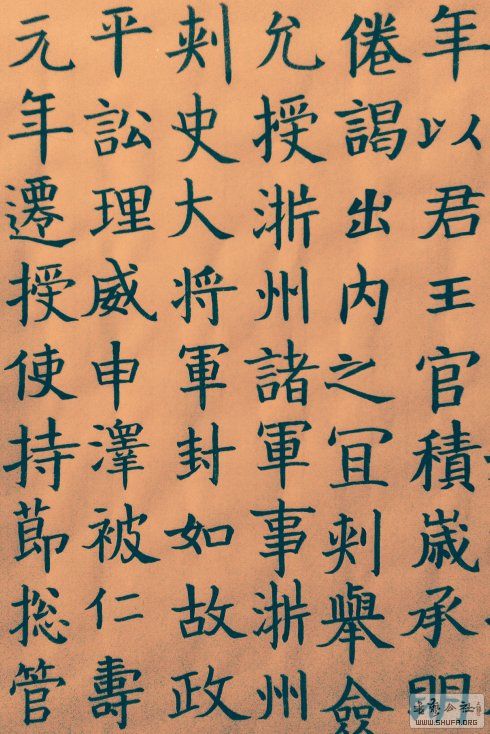 年以君王官積歳承明
倦謁出内之冝刾舉僉
允授淅州諸軍事淅州
刾史大将軍封如故政
平訟理威申澤被仁壽
元年遷授使持節捴管
WWW.SHUFA.ORG